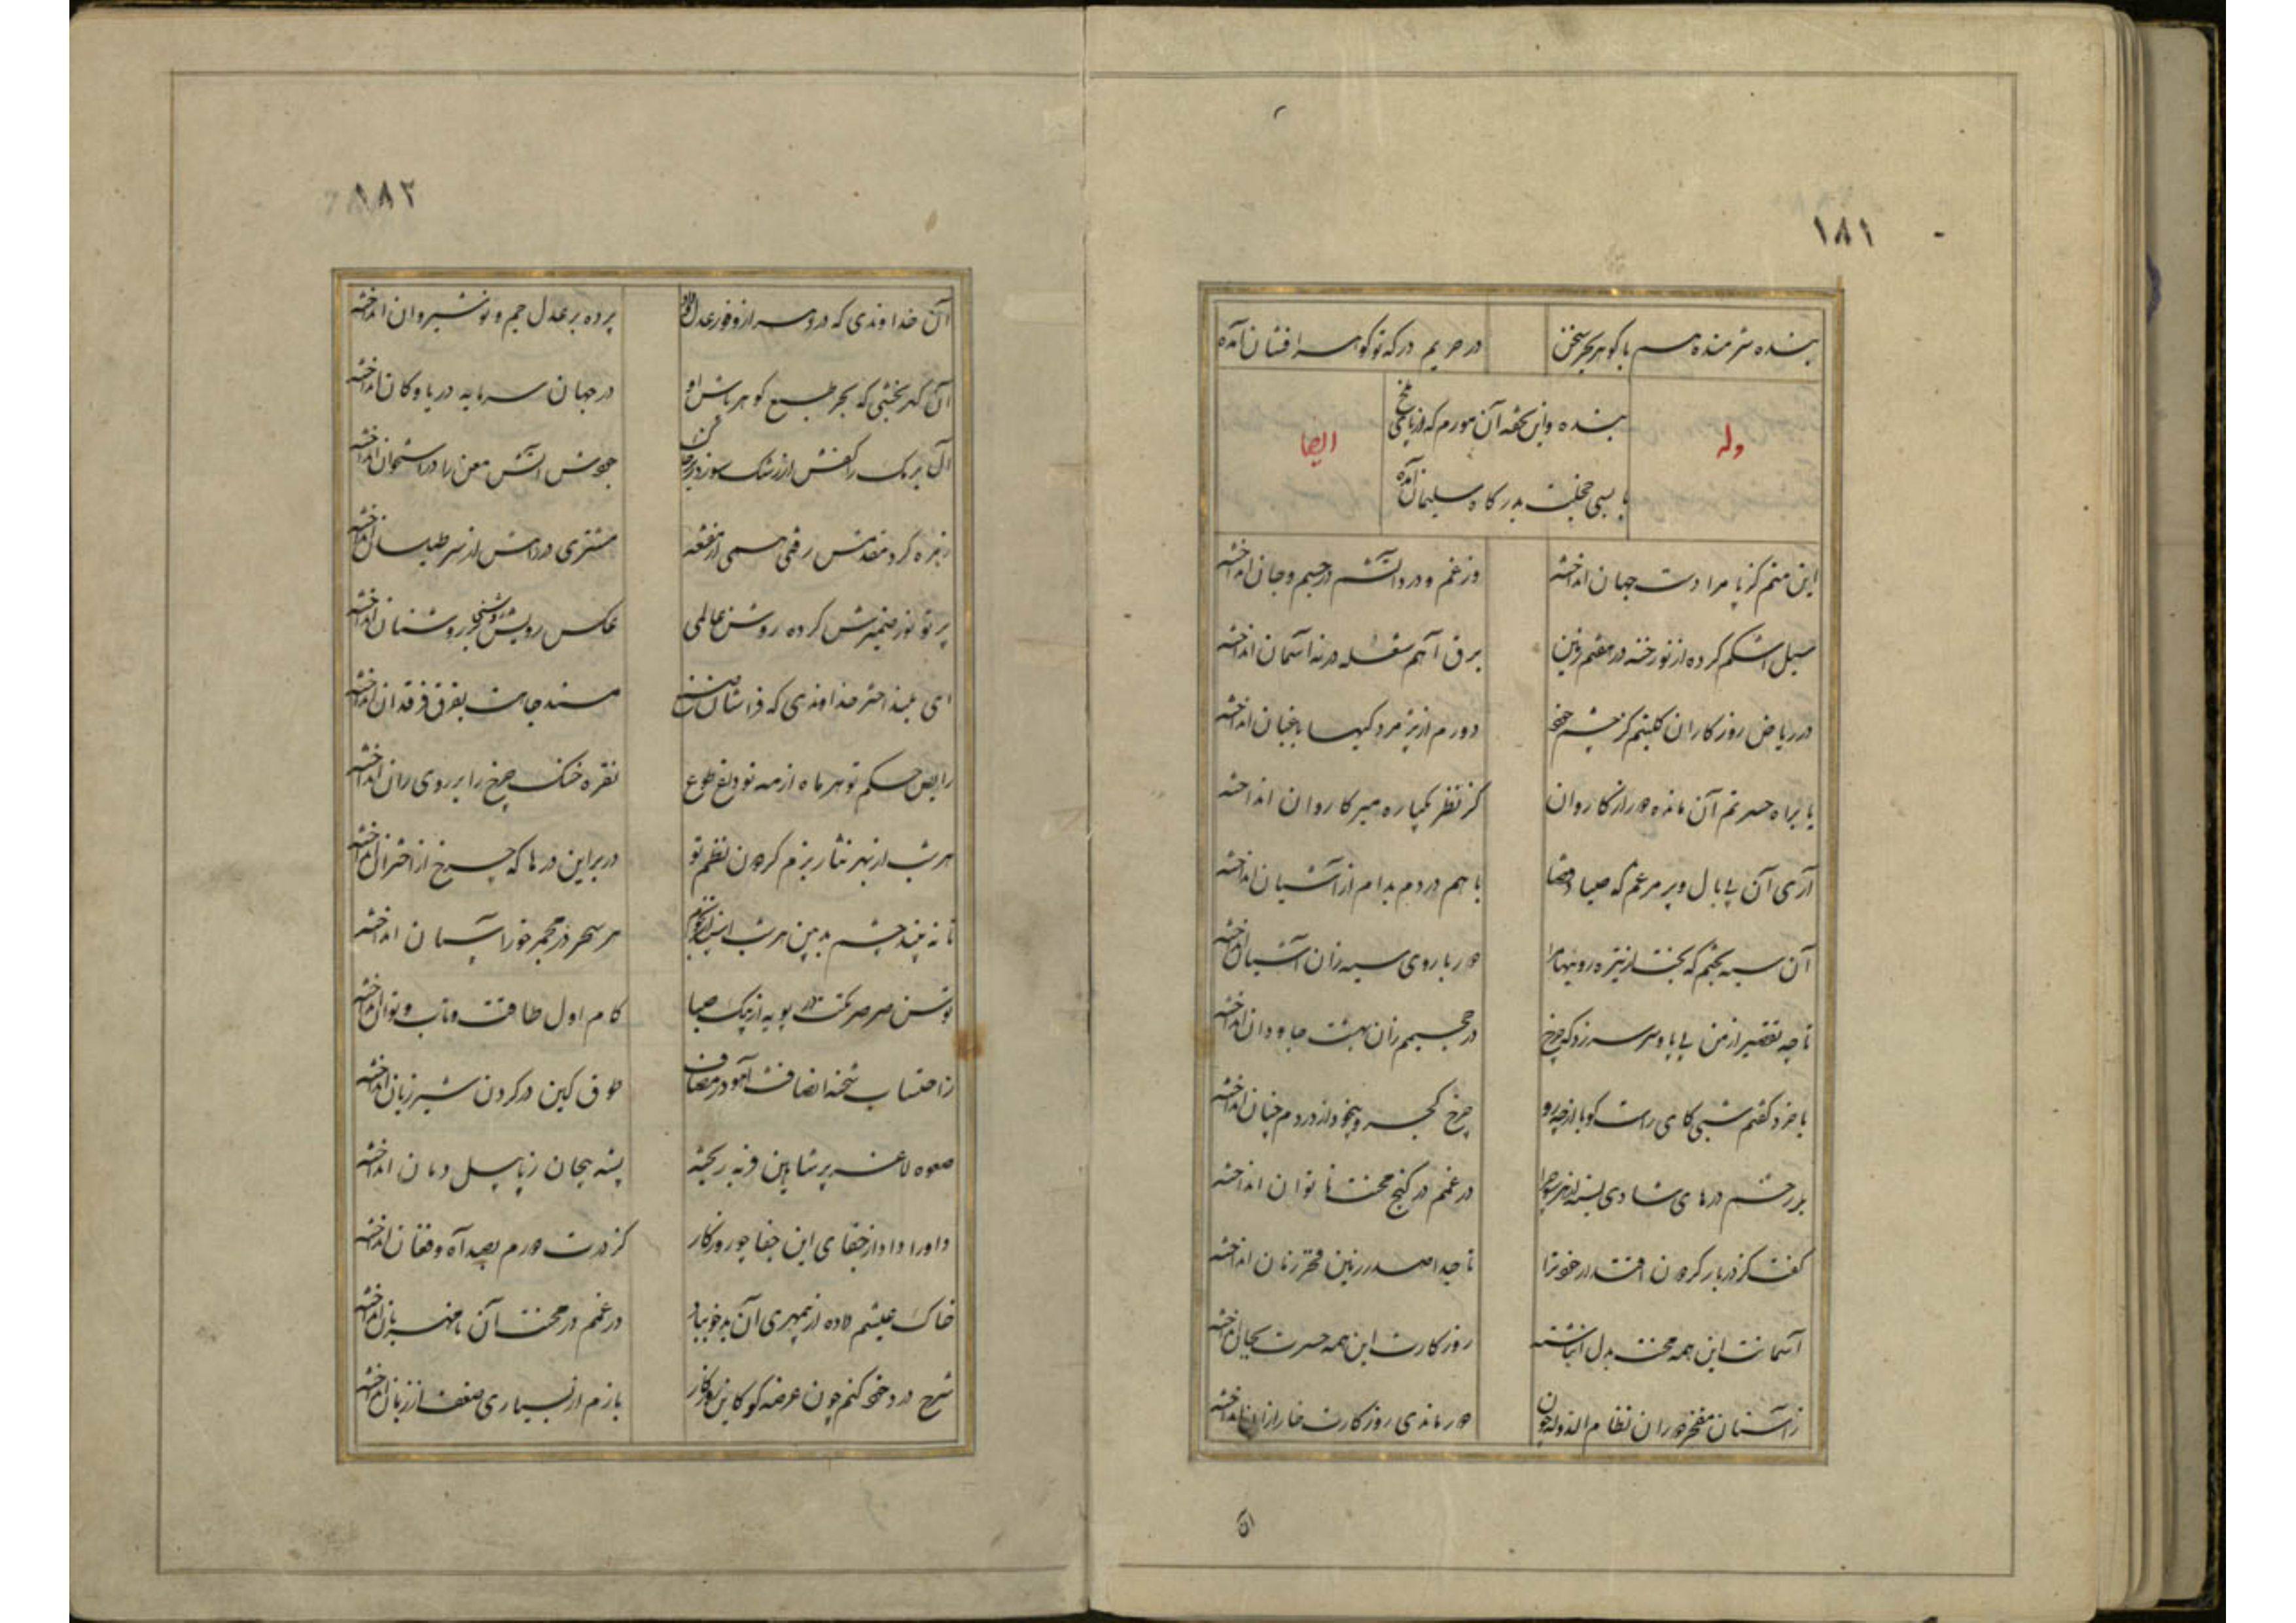 ۱۸۱
بنده شرمنده هم با گوهر بحر سخن
در حریم درگه تو گوهر افشان آمده
وله
بنده و این تحفه آن مورم که از پای ملخ
با بسی خجلت بدرگاه سلیمان آمده
ایضا
این منم کز پا مرا دست جهان انداخته
وز غم و درد آتشم در جسم و جان انداخته
سیل اشکم کرده از نو رخنه در هفتم زمین
برق آهم شعله در نه آسمان انداخته
در ریاض روزگار آن گلبنم کز چشم خود
دورم از پژمردگیها باغبان انداخته
یا براه حسرتم آن مانده دور از کاروان
کز نظر یکباره میر کاروان انداخته
آری آن بی بال و پر مرغم که صیاد قضا
با هم در دم بدام از آشیان انداخته
آن سیه بختم که بخت از تیره روییها مرا
دور با روی سیه زان آستان انداخته
تا چه تقصیر از من بی پا و سر سر زد که چرخ
در جحیمم زان بهشت جاودان انداخته
با خرد گفتم شبی کای راست گو با از چه رو
چرخ کجرو بیخود از دردم چنان انداخته
بر رخم درهای شادی بسته از هر سو چرا
در غمم در کنج محنت ناتوان انداخته
گفت کز دربار گردون اقتدار خود ترا
تا جدا صدر زمین فخر زمان انداخته
آسمانت این همه محنت بدل انباشته
روزگارت این همه حسرت بجان انداخته
ز آستان مفخر دوران نظام الدوله چون
دور ماندی روزگارت خار ازان انداخته
آن
۱۸۲
آن خداوندی که در دهر از وفور عدل و داد
پرده بر عدل جم و نوشیروان انداخته
آن گهر بخشی که بحر طبع گوهر پاش او
در جهان سرمایه دریا و کان انداخته
آن برمک را کفش از رشک سوز در کفن
جودش آتش معن را در استخوان انداخته
زهره گرد مقدمش رفتی همی از مقنعه
مشتری در دامنش از سر طیلسان انداخته
پرتو نور ضمیرش کرده روشن عالمی
عکس رویش روشنی بر روشنان انداخته
ای بلند اختر خداوندی که فراشان صنع
مسند جاهت بفرق فرقدان انداخته
رایض حکم تو هر ماه از مه نو داغ طوع
نقره خنگ چرخ را بر روی ران انداخته
هر شب از بهر نثار بزم گردون نظم تو
در بر این درها که چرخ از اختران انداخته
تا نه بیند چشم بدبین هر شب
هر سحر در مجمر خور آسمان انداخته
توسن صرصر تکت در پویه از پیک صبا
گام اول طاقت و تاب و توان انداخته
ز احتساب شحنه انصافت آهو در مصاف
طوق کین در گردن شیر ژیان انداخته
صعوه لاغر پر شاهین فربه ریخته
پشه بیجان ز پا پیل دمان انداخته
داورا داد از جفای این جفا جو روزگار
کز درت دورم بصد آه و فغان انداخته
خاک عیشم داده از بیمهری آن بدخو بباد
در غمم در محنت آن نامهربان انداخته
شرح درد خود کنم چون عرضه کو کاین روزگار
بازم از بسیاری ضعف از زبان انداخته